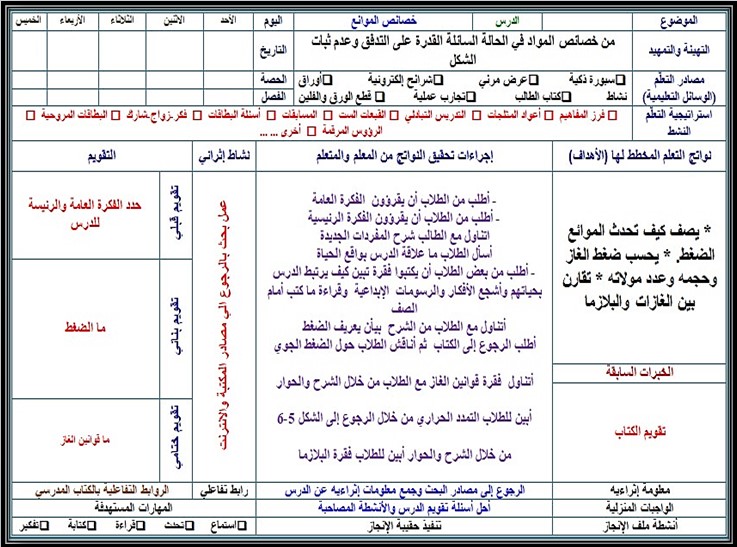 الموضوع الدرس خصائص الموائع اليوم الأحد الاثنين الثلاثاء الأربعاء الخميس
التهيئة والتمهيد من خصائص المواد في الحالة السائلة القدرة على التدفق وعدم ثبات الشكل التاريخ
مصادر التعلم ❑سبورة ذكية ❑عرض مرئي ❑شرائح إلكترونية ❑أوراق الحصة
(الوسائل التعليمية) نشاط ❑كتاب الطالب ❑تجارب عملية ❑ قطع الورق والفلين الفصل
استراتيجية التعلم النشط □ فرز المفاهيم □ أعواد المثلجات □ التدريس التبادلي □ القبعات الست □ المسابقات □ أسئلة البطاقات □ فكر-زواج-شارك □ البطاقات المروحية
□ الرؤوس المرقمة □ أخرى ... ...
نواتج التعلم المخطط لها (الأهداف) إجراءات تحقيق النواتج من المعلم والمتعلم نشاط إثرائي التقويم
* يصف كيف تحدث الموائع
الضغط. * يحسب ضغط الغاز
وحجمه وعدد مولاته * تقارن
بين الغازات والبلازما
الخبرات السابقة
تقويم الكتاب
- أطلب من الطلاب أن يقرؤون الفكرة العامة
- أطلب من الطلاب أن يقرؤون الفكرة الرئيسية
اتناول مع الطالب شرح المفردات الجديدة
أسأل الطلاب ما علاقة الدرس بواقع الحياة
- أطلب من بعض الطلاب أن يكتبوا فقرة تبين كيف يرتبط الدرس
بحياتهم وأشجع الأفكار والرسومات الإبداعية وقراءة ما كتب أمام
الصف
أتناول مع الطلاب من الشرح بيأن يعريف الضغط
أطلب الرجوع إلى الكتاب ثم أناقش الطلاب حول الضغط الجوي
أتناول فقرة قوانين الغاز مع الطلاب من خلال الشرح والحوار
أبين للطلاب التمدد الحراري من خلال الرجوع إلى الشكل 5-6
من خلال الشرح والحوار أبين للطلاب فقرة البلازما
عمل بحث بالرجوع الي مصادر المكتبة والانترنت
تقويم قبلي
حدد الفكرة العامة والرئيسة
للدرس
تقويم بنائي
ما الضغط
تقويم ختامي
ما قوانين الغاز
معلومة إثراءيه الرجوع إلى مصادر البحث وجمع معلومات إثراءيه عن الدرس رابط تفاعلي الروابط التفاعلية بالكتاب المدرسي
الواجبات المنزلية أحل أسئلة تقويم الدرس والأنشطة المصاحبة المهارات المستهدفة
أنشطة ملف الإنجاز تنفيذ حقيبة الإنجاز ❑استماع ❑تحدث ❑قراءة ❑كتابة ❑تفكير